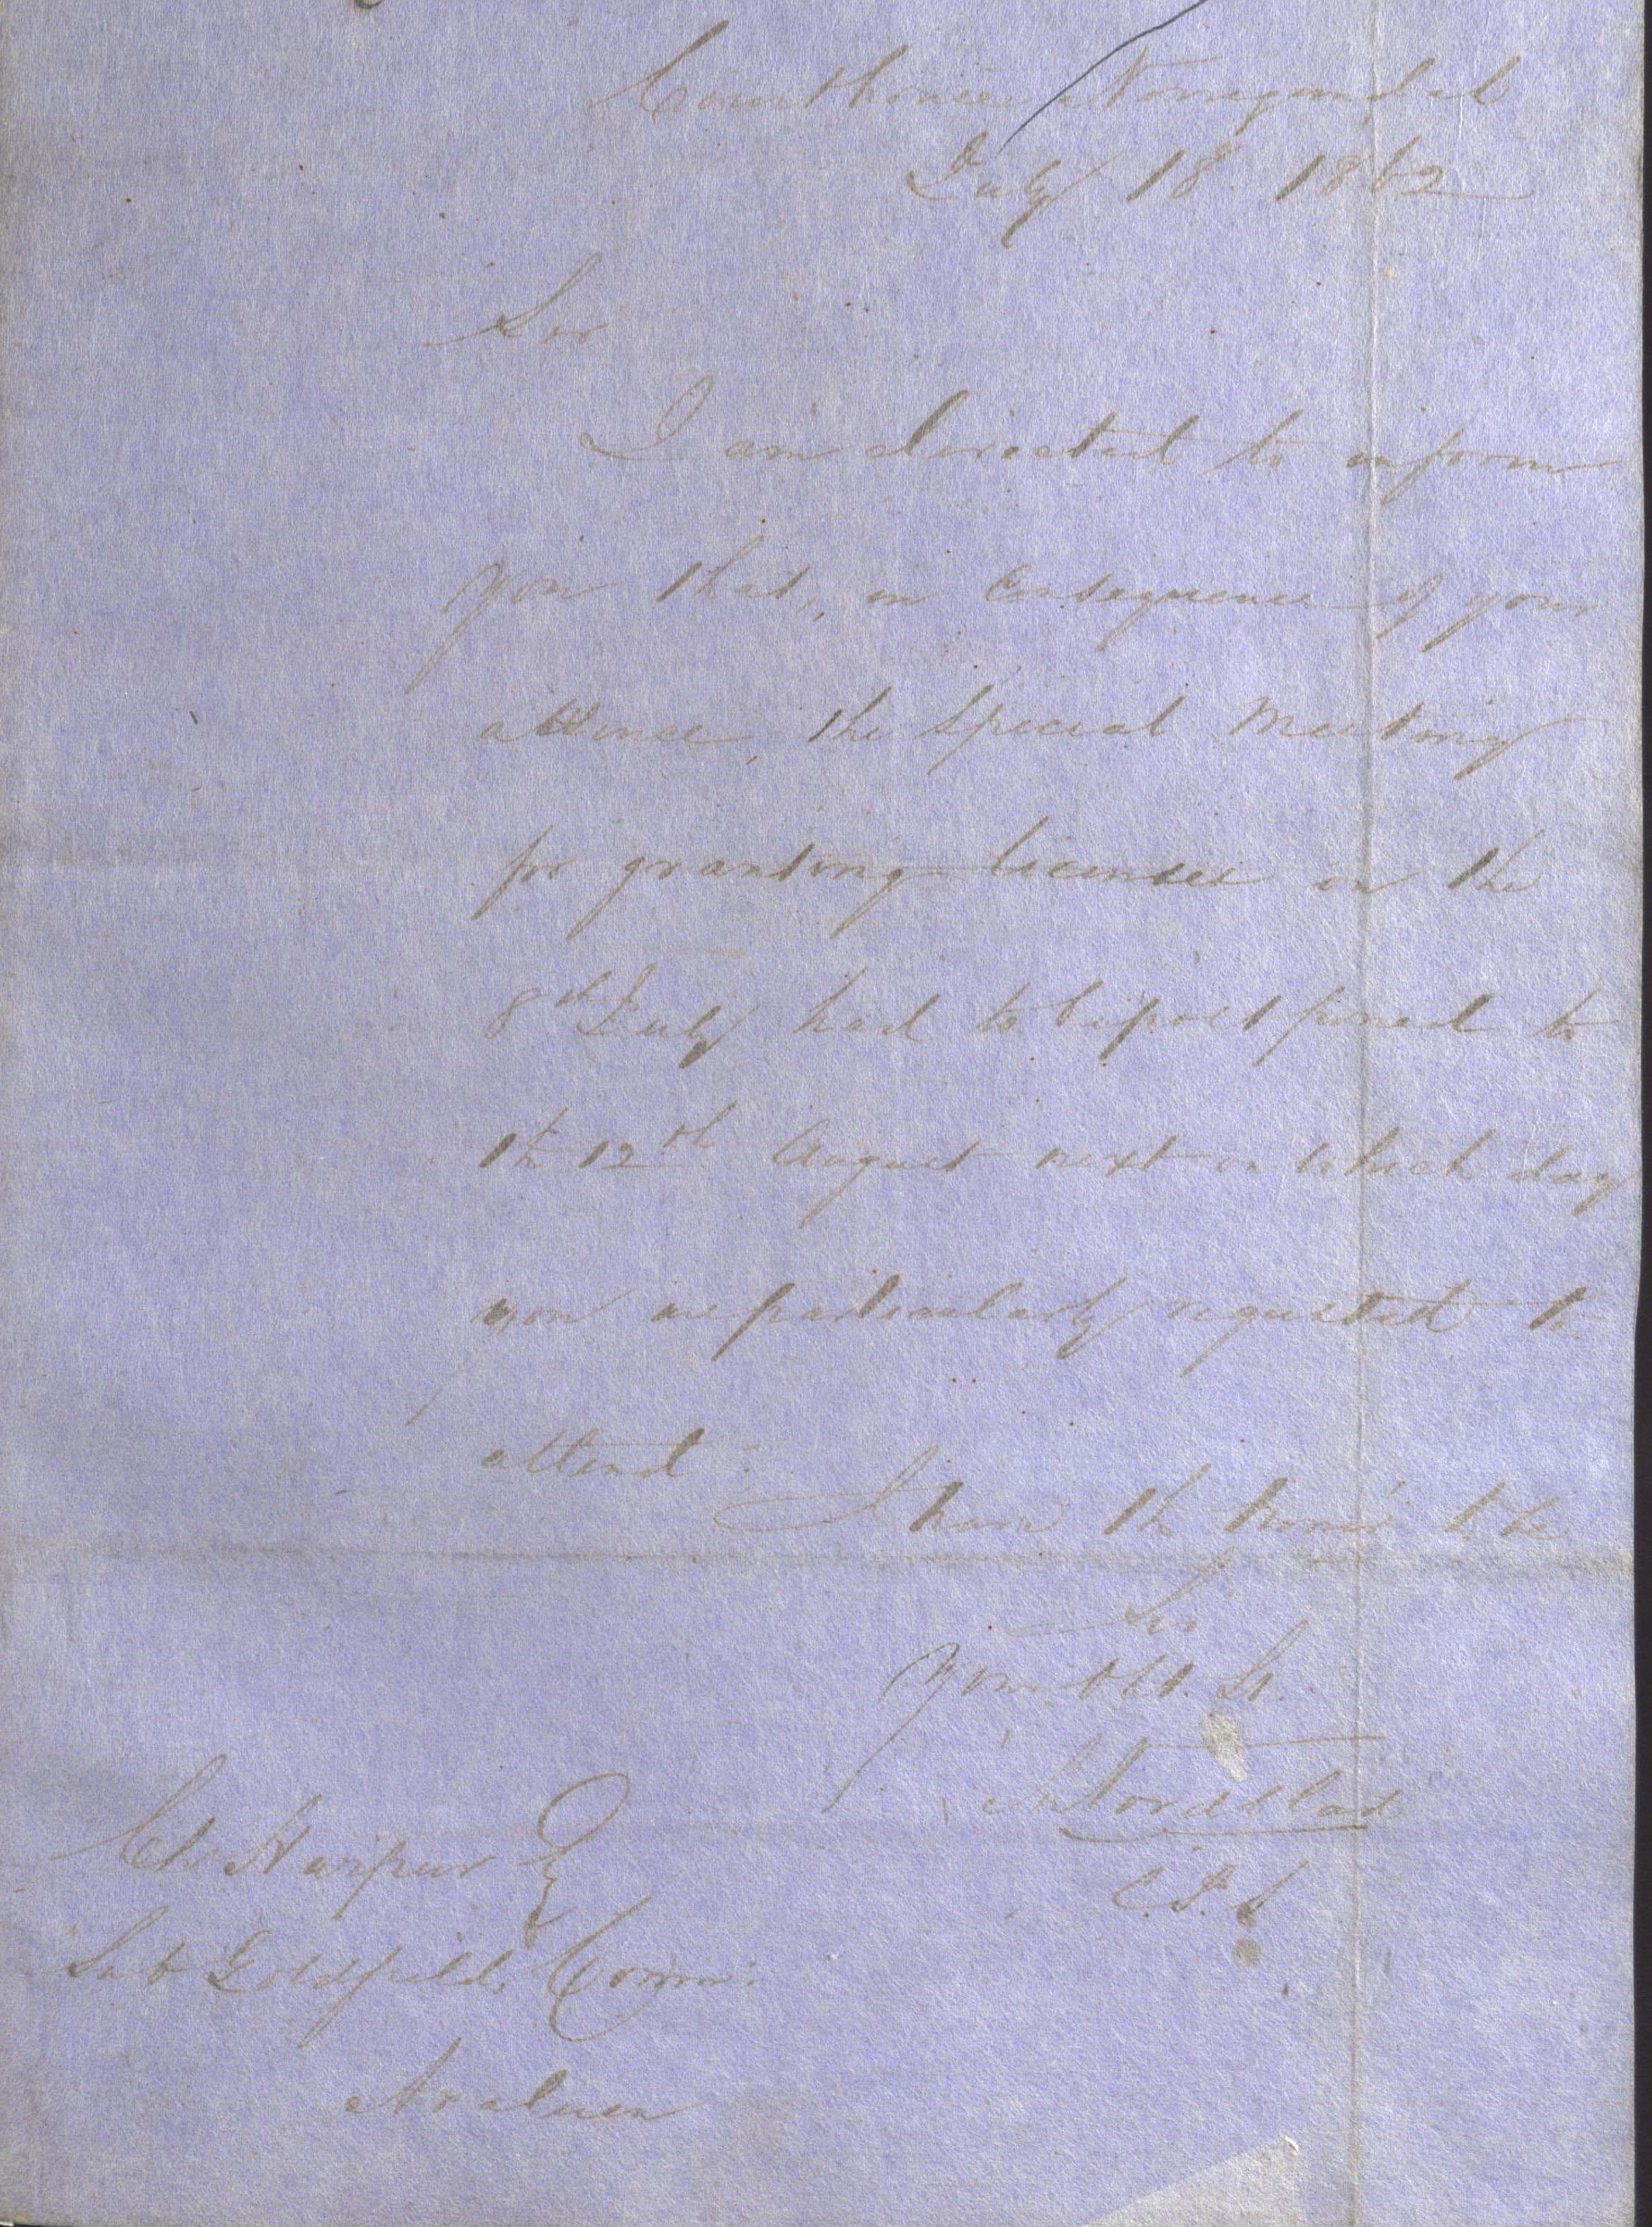 Courthouse Nerrigundah
July 18 1862
Sir
I am directed to inform
you that, in Consequence of your
absence, the Special Meeting
for granting licenses on the
8th July had to be postponed to
the 12th August next on which day
you are particularly requested to
attend.
I have the honor to be
Sir
Your Obt. St.
C.P.S
Chs Harpur Esq
Sub Goldfields Comm:
Araluen